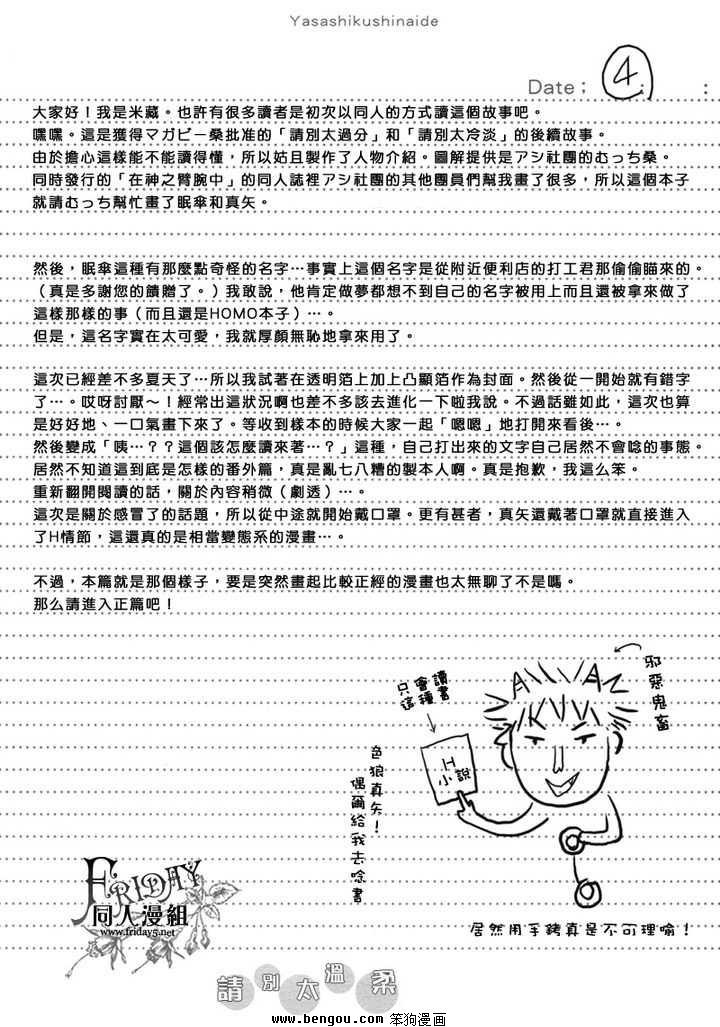 Yasashikushinaide
Date; 4 :
大家好！我是米藏。也許有很多讀者是初次以同人的方式讀這個故事吧。
嘿嘿。這是獲得マガビー桑批准的「請別太過分」和「請別太冷淡」的後續故事。
由於擔心這樣能不能讀得懂，所以姑且製作了人物介紹。圖解提供是アシ社團的むっち桑。
同時發行的「在神之臂腕中」的同人誌裡アシ社團的其他團員們幫我畫了很多，所以這個本子
就請むっち幫忙畫了眠傘和真矢。
然後，眠傘這種有那麼點奇怪的名字…事實上這個名字是從附近便利店的打工君那偷偷瞄來的。
（真是多謝您的饋贈了。）我敢說，他肯定做夢都想不到自己的名字被用上而且還被拿來做了
這樣那樣的事（而且還是HOMO本子）…。
但是，這名字實在太可愛，我就厚顏無恥地拿來用了。
這次已經差不多夏天了…所以我試著在透明箔上加上凸顯箔作為封面。然後從一開始就有錯字
了…。哎呀討厭～！經常出這狀況啊也差不多該去進化一下啦我說。不過話雖如此，這次也算
是好好地、一口氣畫下來了。等收到樣本的時候大家一起「嗯嗯」地打開來看後…。
然後變成「咦…？？這個該怎麼讀來著…？」這種，自己打出來的文字自己居然不會唸的事態。
居然不知道這到底是怎樣的番外篇，真是亂七八糟的製本人啊。真是抱歉，我這么笨。
重新翻開閱讀的話，關於內容稍微（劇透）…。
這次是關於感冒了的話題，所以從中途就開始戴口罩。更有甚者，真矢還戴著口罩就直接進入
了H情節，這還真的是相當變態系的漫畫…。
不過，本篇就是那個樣子，要是突然畫起比較正經的漫畫也太無聊了不是嗎。
那么請進入正篇吧！
邪惡鬼畜
只會讀
這種書
H
小說
色狼真矢！
偶爾給我去唸書
居然用手銬真是不可理喻！
FRIDAY
同人漫組
www.friday5.net
請別太溫柔
www.bengou.com 笨狗漫画